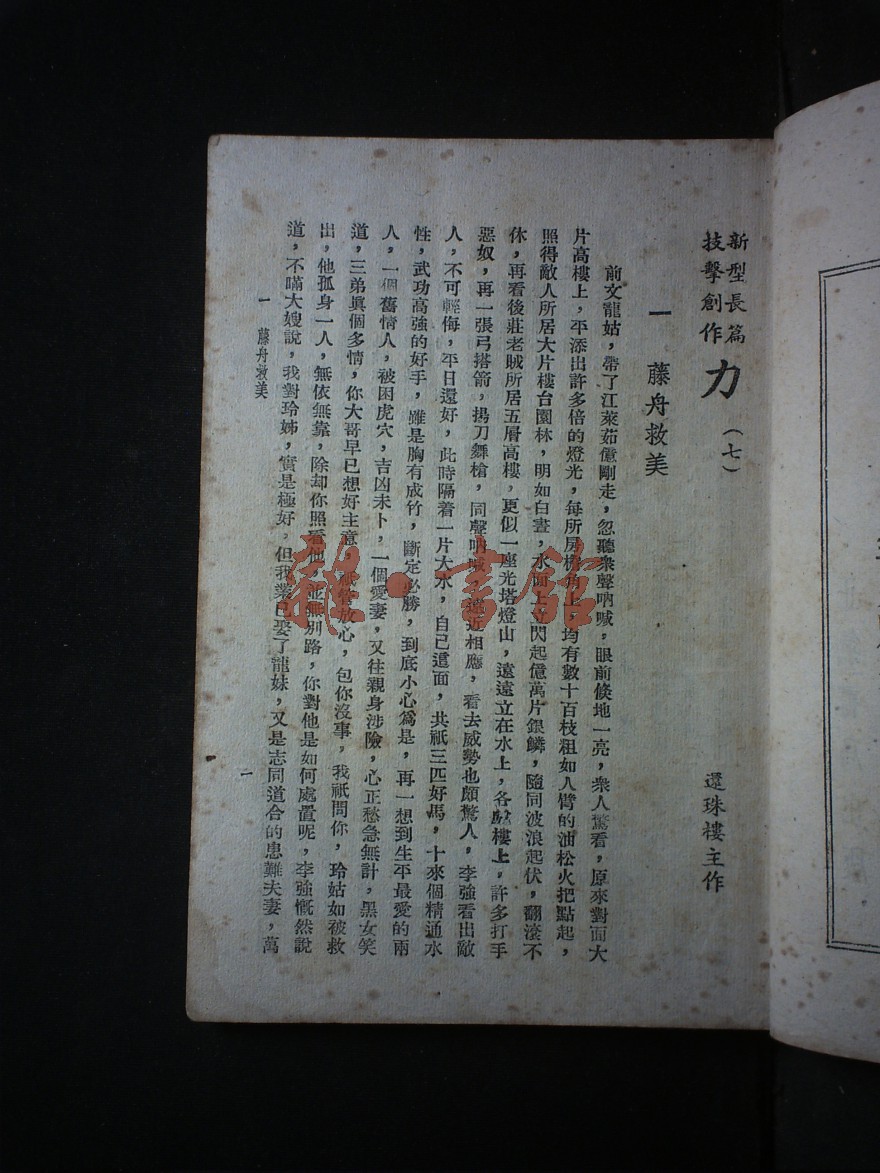 新型長篇
技擊創作
力
（七）
還珠樓主作
一　藤舟救美
前文龍姑，帶了江萊茹億剛走，忽聽衆聲吶喊，眼前倏地一亮，衆人驚看，原來對面大
片高樓上，平添出許多倍的燈光，每所房樓角上，均有數十百枝粗如人臂的油松火把點起，
照得敵人所居大片樓台園林，明如白晝，水面上立閃起億萬片銀鱗，隨同波浪起伏，翻滾不
休，再看後莊老賊所居五層高樓，更似一座光塔燈山，遠遠立在水上，各處樓上，許多打手
惡奴，再一張弓搭箭，揚刀舞槍，同聲吶喊，遠近相應，看去威勢也頗驚人，李強看出敵
人，不可輕侮，平日還好，此時隔着一片大水，自己這面，共祇三匹好馬，十來個精通水
性，武功高強的好手，雖是胸有成竹，斷定必勝，到底小心爲是，再一想到生平最愛的兩
人，一個舊情人，被困虎穴，吉凶未卜，一個愛妻，又往親身涉險，心正愁急無計，黑女笑
道，三弟眞個多情，你大哥早已想好主意，祇管放心，包你沒事，我祇問你，玲姑如被救
出，他孤身一人，無依無靠，除却你照看他，並無別路，你對他是如何處置呢，李強慨然說
道，不瞞大嫂說，我對玲姊，實是極好，但我業已娶了龍妹，又是志同道合的患難夫妻，萬
一　藤舟救美
一
龍　書館